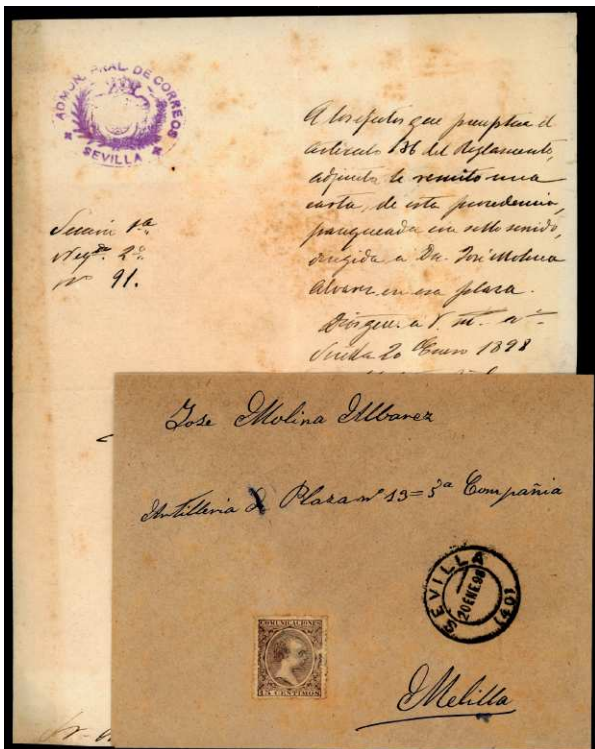 ADMON. PRAL. DE CORREOS
SEVILLA
Sección 1ª
Negdo. 2º
Nº 91.
A los efectos que preceptua el
artículo 136 del Reglamento,
adjunta le remito una
carta, de esta procedencia,
franqueada con sello servido,
dirigida a Dn. José Molina
Alvarez en esa plaza.
Dios gue. a V. m. aº
Sevilla 20 Enero 1898
Jose Molina Albarez
Artilleria Plaza nº 13=3ª Compañia
SEVILLA
20 ENE 98
(40)
COMUNICACIONES
15 CENTIMOS
Melilla